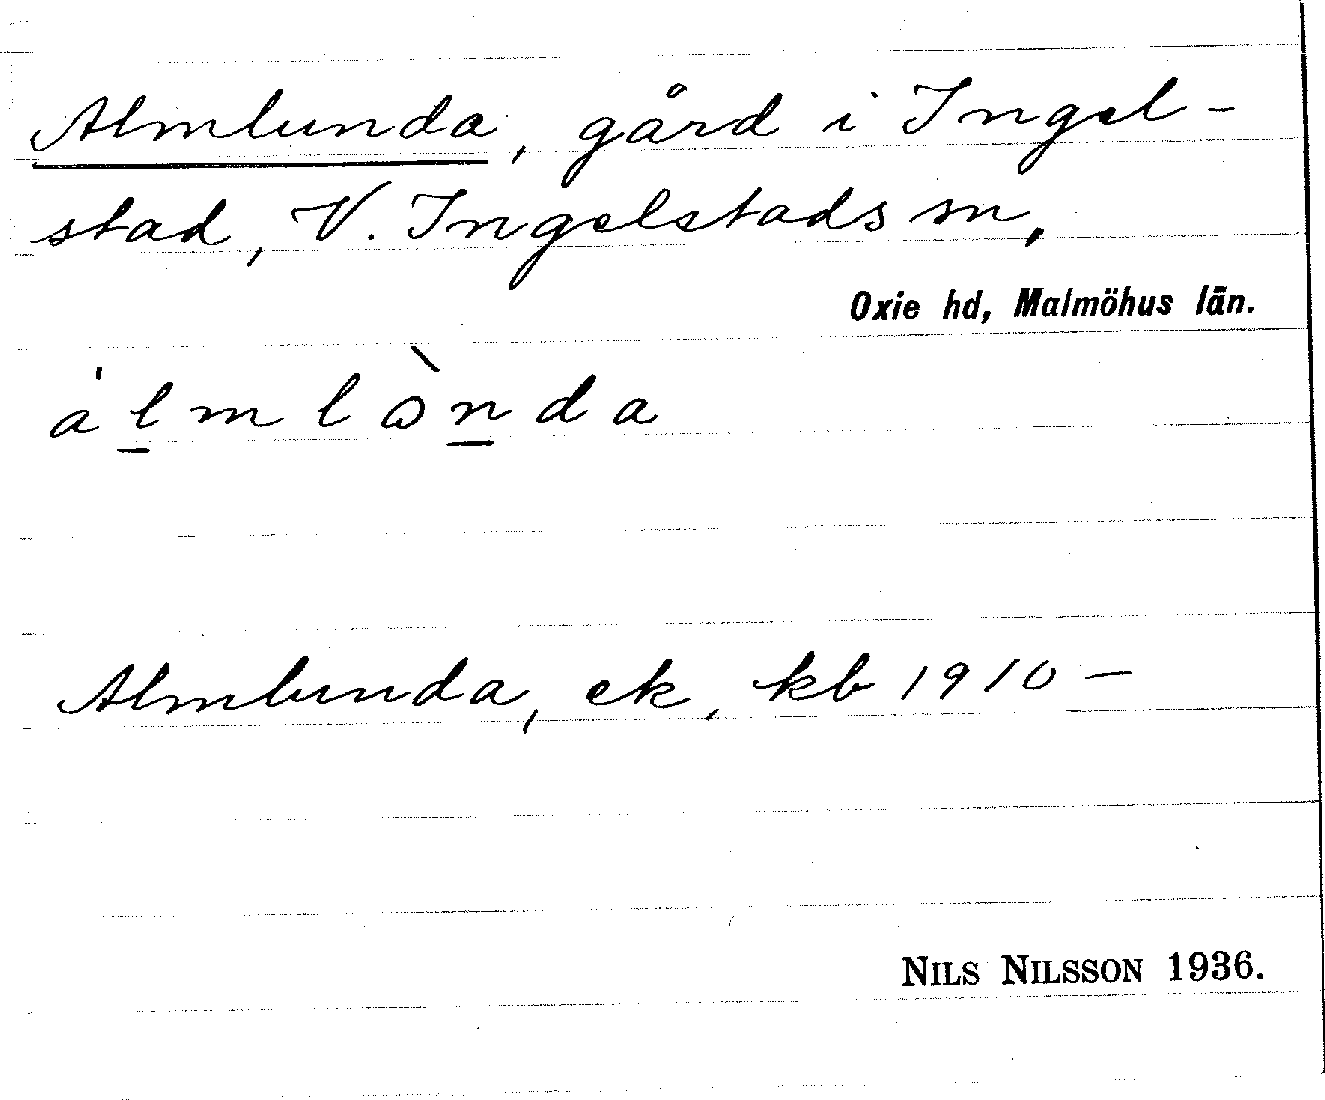 Almlunda, gård i Ingel-
stad, V. Ingelstads sn,
Oxie hd, Malmöhus län.
a̍l̲mlὼn̲da
Almlunda, ek, kb 1910 –
NILS NILSSON 1936.